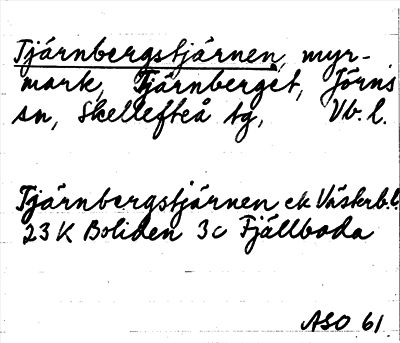 Tjärnbergstjärnen, myr-
mark, Tjärnberget, Jörns
sn, Skellefteå tg, Vb. l.
Tjärnbergstjärnen ek Västerb.l.
23 K Boliden 3c Fjällboda
ASO 61